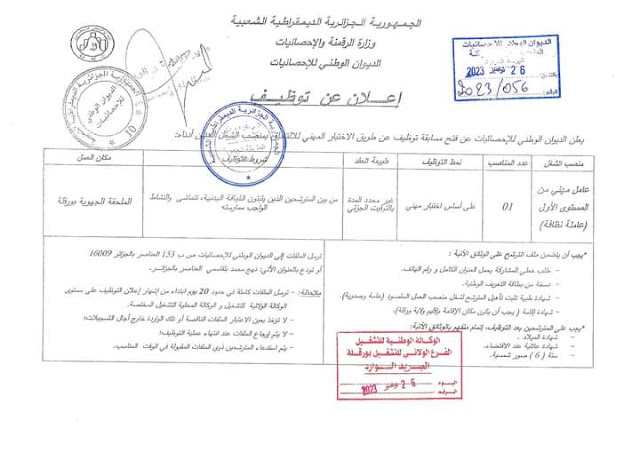 الجمهورية الجزائرية الديمقراطية الشعبية
وزارة الرقمنة والإحصائيات
الديوان الوطني للإحصائيات
إعلان عن توظيف
الديوان الوطني للإحصائيات
26 نوفمبر 2023
2023/056
يعلن الديوان الوطني للإحصائيات عن فتح مسابقة توظيف عن طريق الاختبار المهني للالتحاق بمنصب الشغل المبين أدناه:
منصب الشغل عدد المناصب نمط التوظيف طبيعة العقد شروط التوظيف مكان العمل
عامل مهني من المستوى الأول (عاملة نظافة)
01
على أساس اختبار مهني
غير محدد المدة بالتوقيت الجزئي
من بين المترشحين الذين يثبتون اللياقة البدنية، تتماشى والنشاط الواجب ممارسته
الملحقة الجهوية بورقلة
*يجب أن يتضمن ملف الترشح على الوثائق الآتية:
- طلب خطي للمشاركة يحمل العنوان الكامل و رقم الهاتف.
- نسخة من بطاقة التعريف الوطنية.
- شهادة طبية تثبت تأهيل المترشح لشغل منصب العمل المقصود (عامة وصدرية).
- شهادة إقامة (يجب أن يكون مكان الإقامة بإقليم ولاية ورقلة).
*يجب على المترشحين بعد التوظيف، إتمام ملفهم بالوثائق الآتية:
- شهادة الميلاد.
- شهادة عائلية عند الاقتضاء.
- ستة (6) صور شمسية.
ترسل الملفات إلى الديوان الوطني للإحصائيات ص ب 153 العناصر بالجزائر 16009
أو تودع بالعنوان الآتي: نهج محمد بلقاسمي العناصر بالجزائر.
ملاحظة: - ترسل الملفات كاملة في حدود 20 يوم ابتداء من إشهار إعلان التوظيف على مستوى
الوكالة الولائية للتشغيل و الوكالة المحلية للتشغيل المختصة.
- لا تؤخذ بعين الاعتبار الملفات الناقصة أو تلك الواردة خارج آجال التسجيلات؛
- لا يتم إرجاع الملفات عند انتهاء عملية التوظيف؛
- يتم استدعاء المترشحين ذوي الملفات المقبولة في الوقت المناسب.
الوكالة الوطنية للتشغيل
الفرع الولائي للتشغيل بورقلة
البريد الوارد
اليوم 26 نوفمبر 2023
الرقم